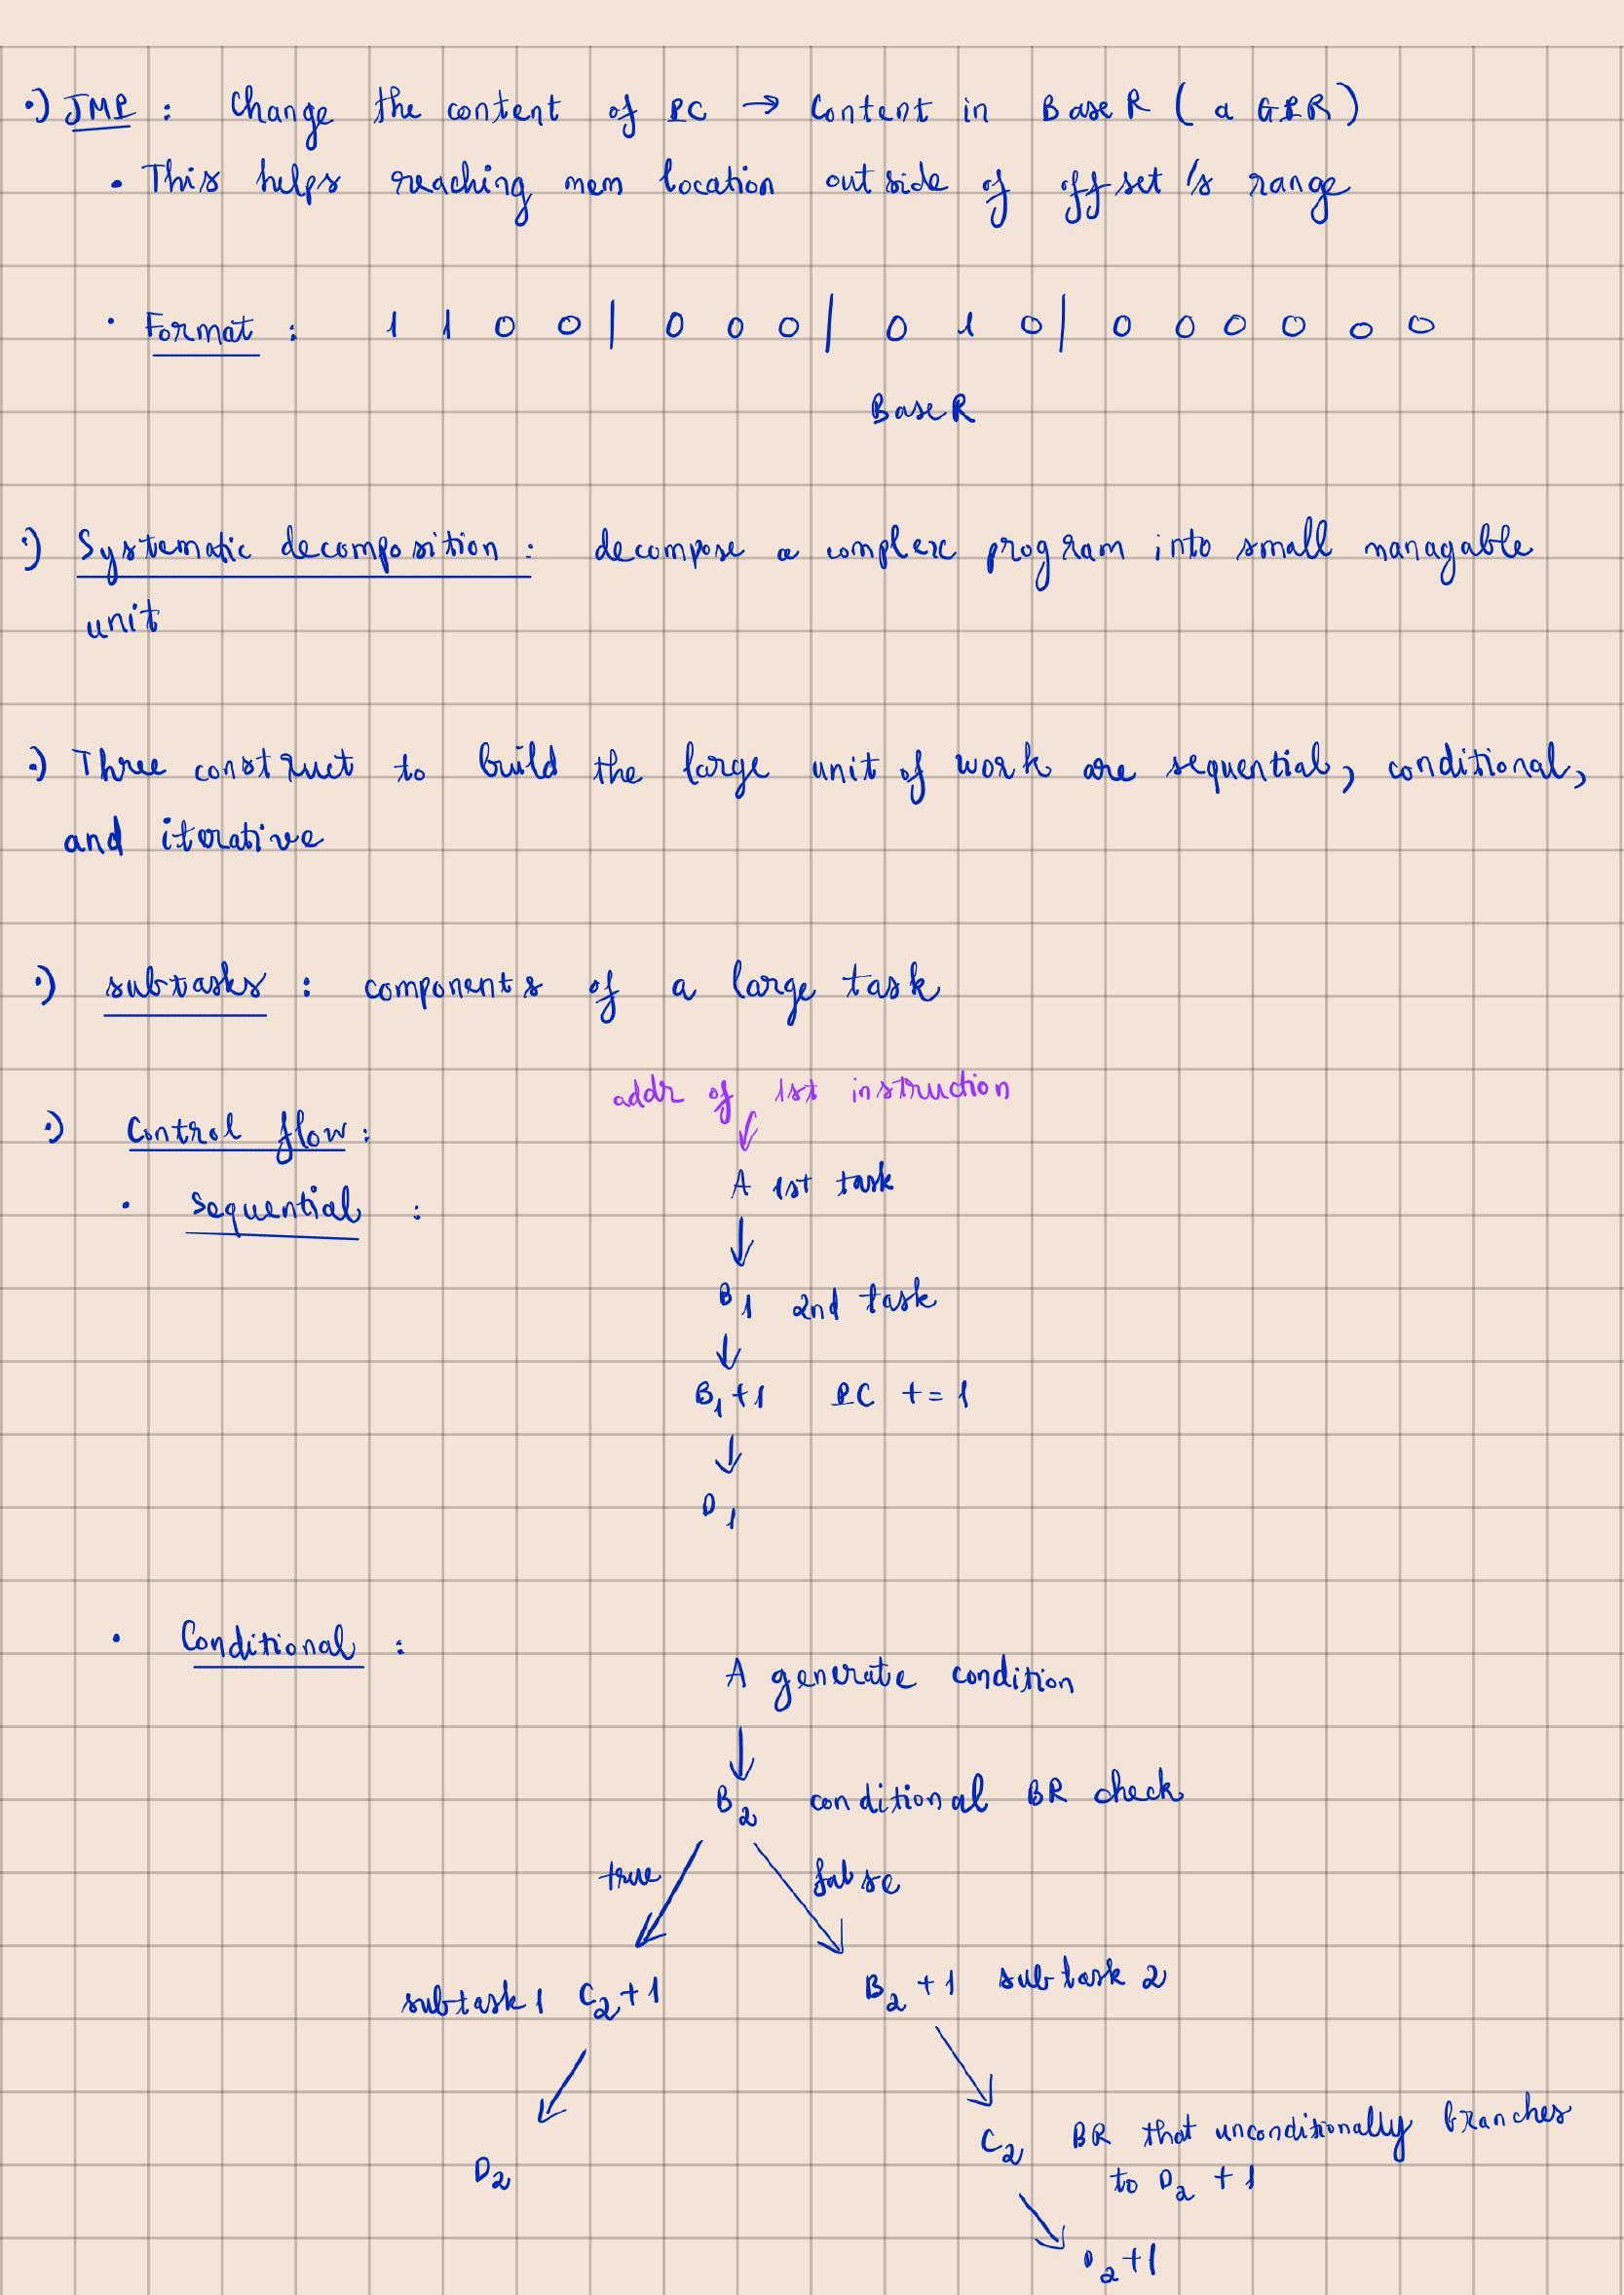 •) JMP : Change the content of PC → Content in BaseR ( a GPR )
• This helps reaching mem location outside of offset's range
• Format : 1 1 0 0 | 0 0 0 | 0 1 0 | 0 0 0 0 0 0
BaseR
•) Systematic decomposition : decompose a complex program into small managable
unit
•) Three construct to build the large unit of work are sequential, conditional,
and iterative
•) subtasks : components of a large task
addr of 1st instruction
↓
•) Control flow :
A 1st task
• Sequential :
↓
B₁ 2nd task
↓
B₁ + 1 PC += 1
↓
D₁
• Conditional :
A generate condition
↓
B₂ conditional BR check
true false
subtask 1 C₂ + 1 B₂ + 1 subtask 2
C₂ BR that unconditionally branches
D₂ to D₂ + 1
D₂ + 1